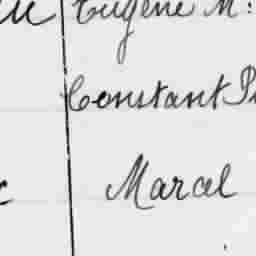 Eugène M:
Constant
Marcel